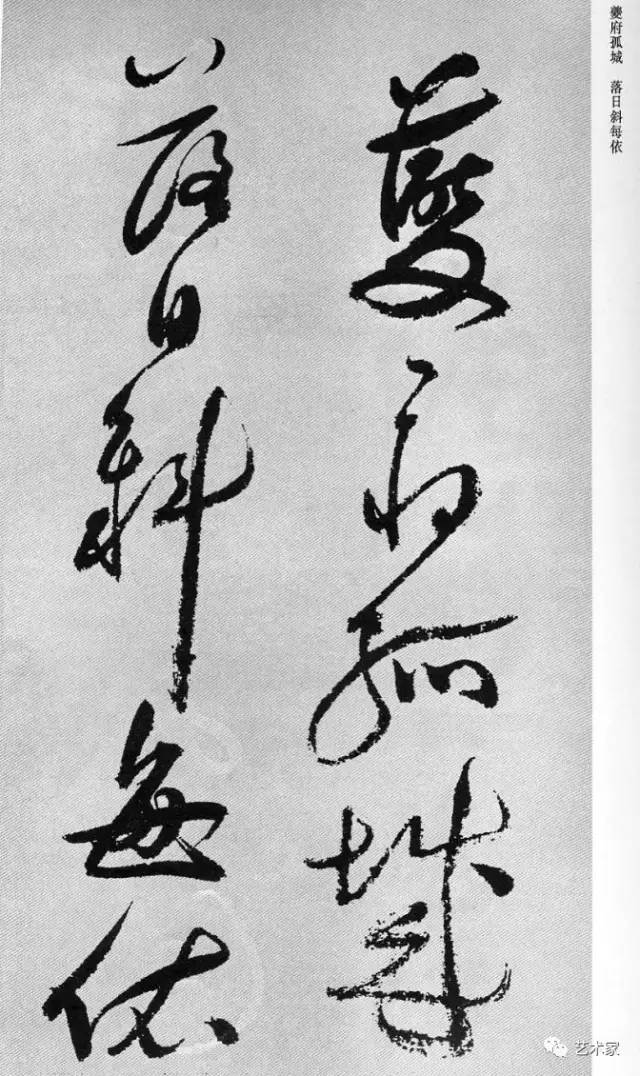 夔府孤城
落日斜每依
夔府孤城 落日斜每依
艺术家